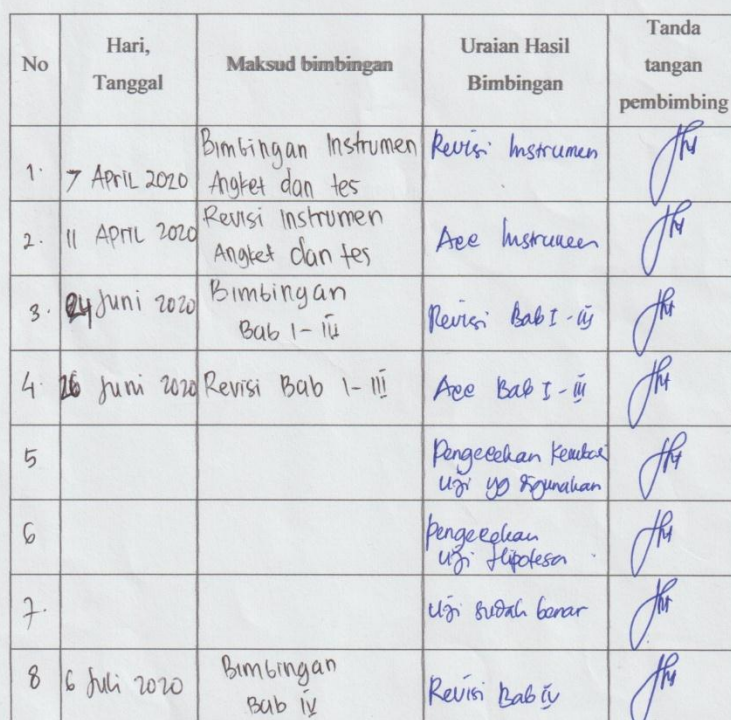 No
Hari,
Tanggal
Maksud bimbingan
Uraian Hasil
Bimbingan
Tanda
tangan
pembimbing
1.
7 April 2020
Bimbingan Instrumen
Angket dan tes
Revisi Instrumen
2.
11 April 2020
Revisi Instrumen
Angket dan tes
Acc Instrumen
3.
24 Juni 2020
Bimbingan
Bab I - III
Revisi Bab I - III
4.
26 Juni 2020
Revisi Bab I - III
Acc Bab I - III
5
Pengecekan Kembali
Uji yg digunakan
6
Pengecekan
Uji Hipotesa
7.
Uji sudah benar
8
6 Juli 2020
Bimbingan
Bab IV
Revisi Bab IV